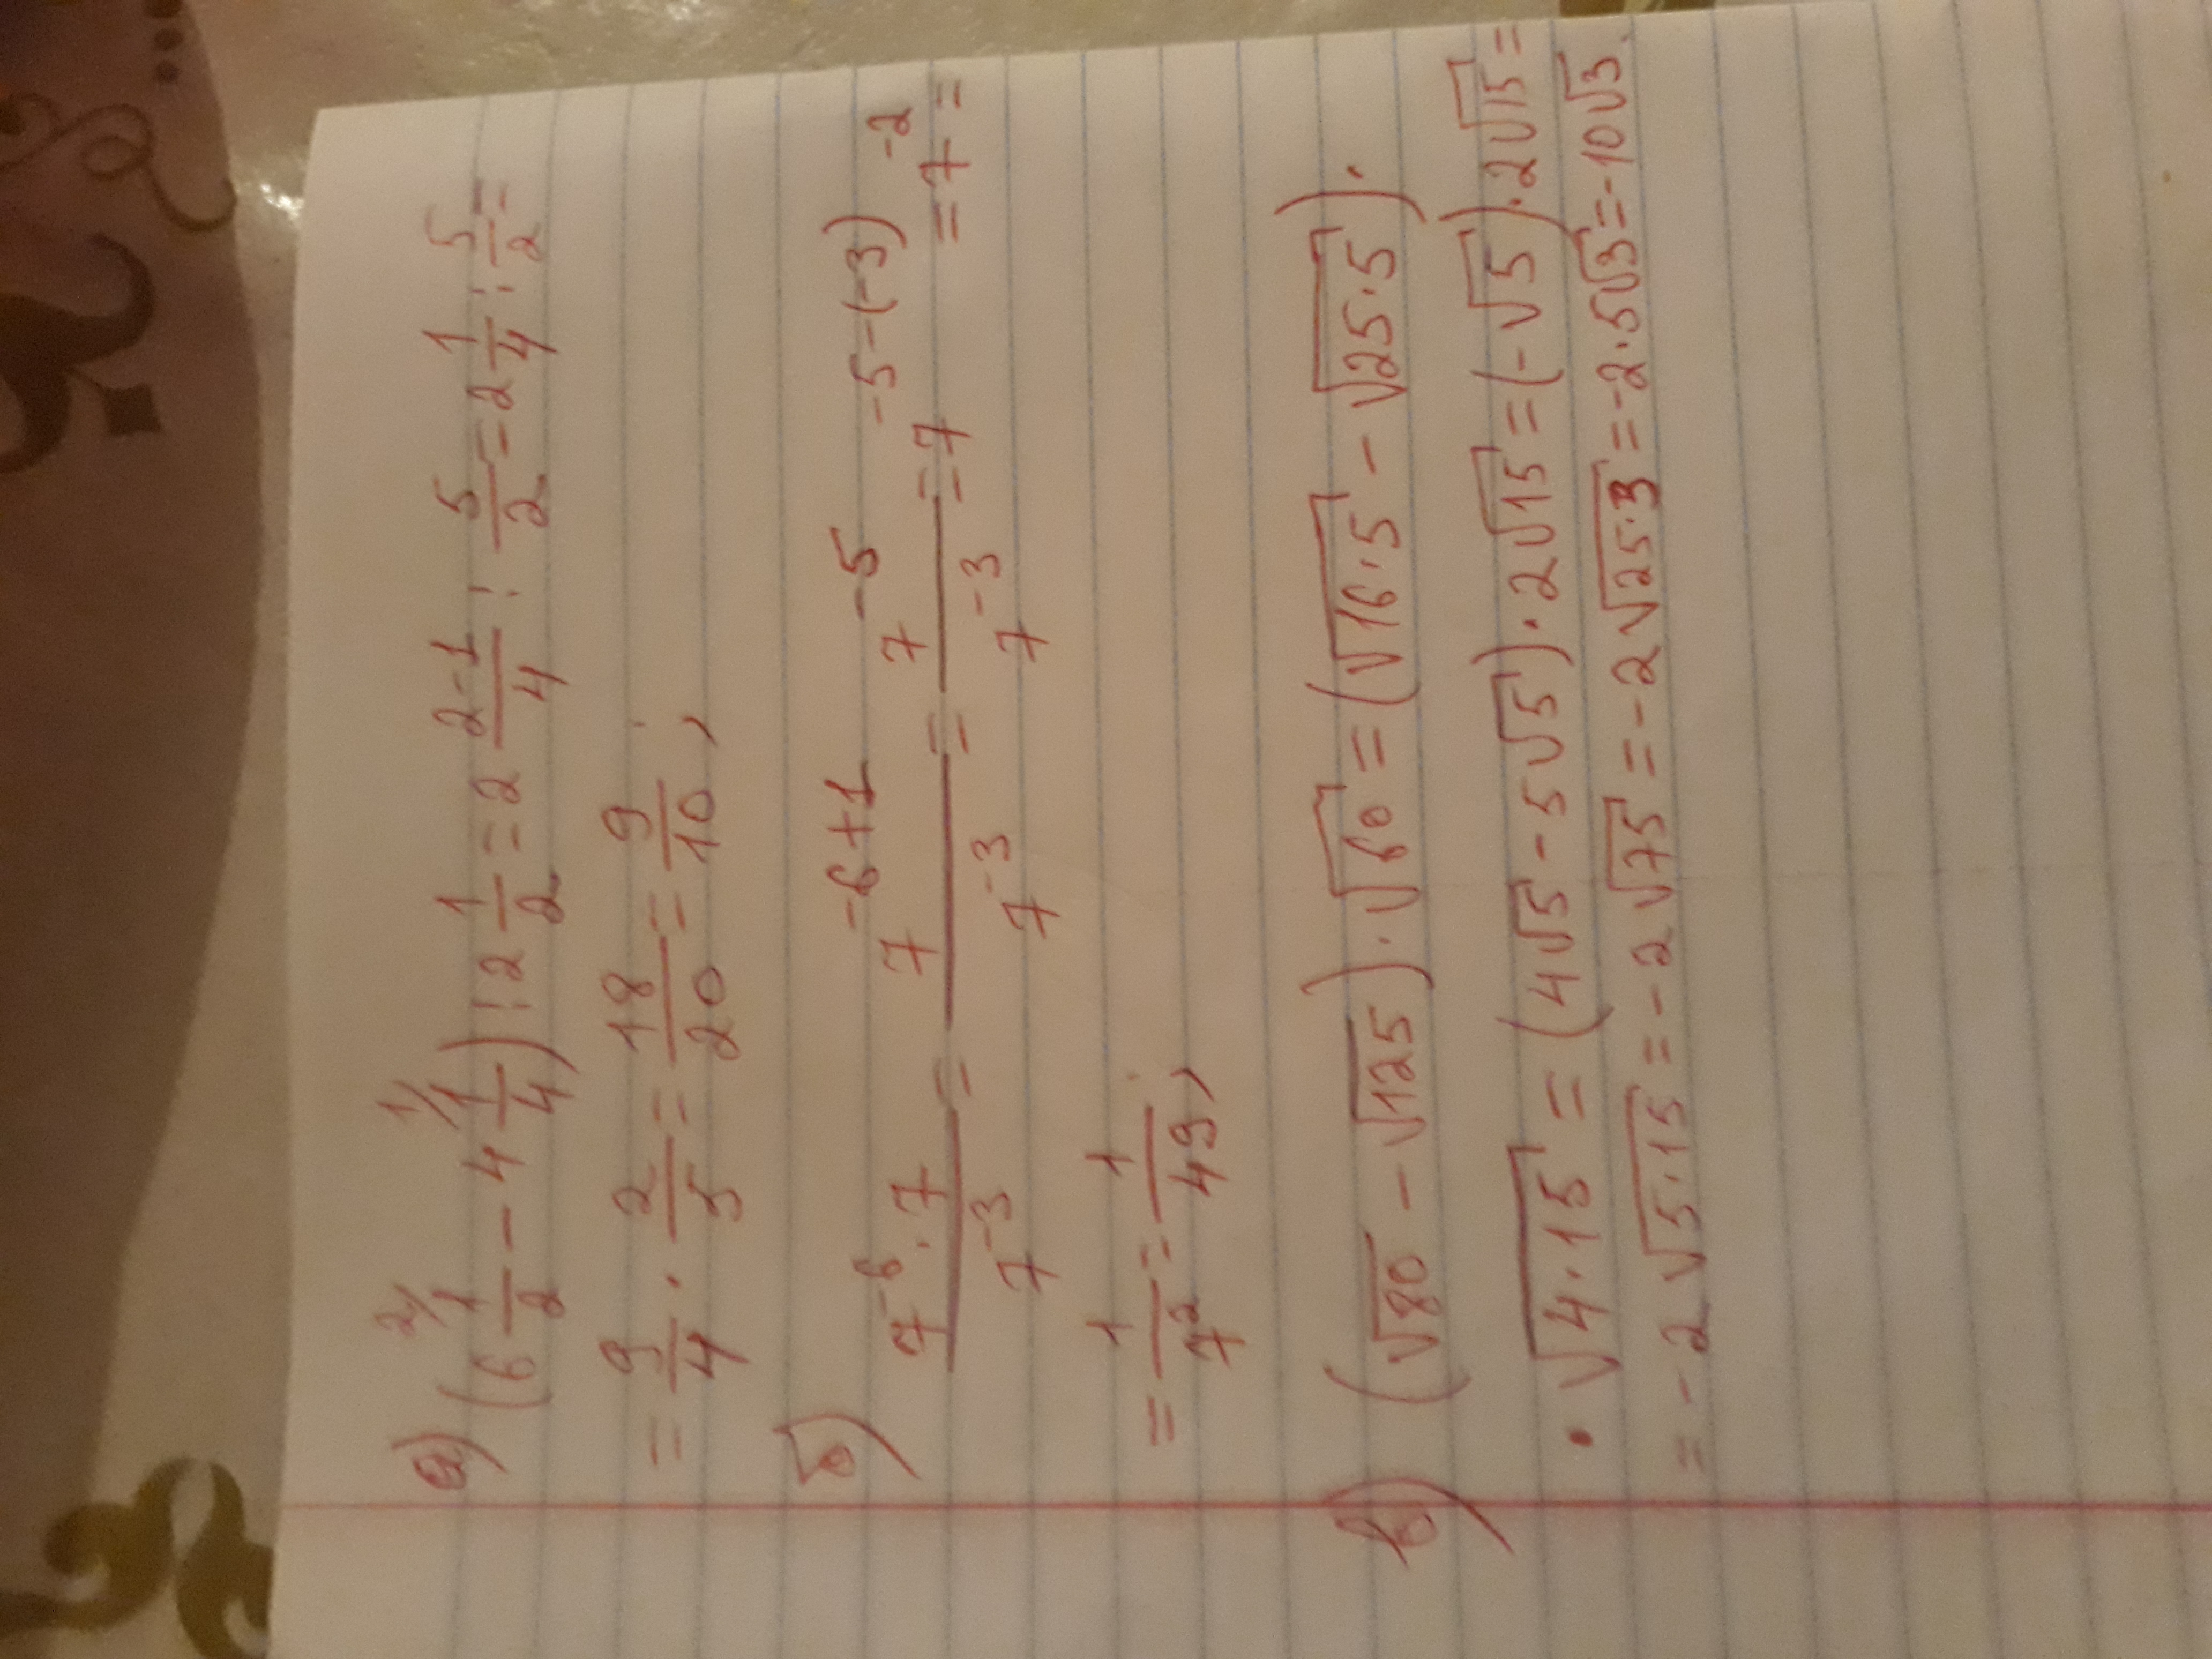 а) (6 1/2 2/ - 4 1/4 1/) : 2 1/2 = 2 (2-1)/4 : 5/2 = 2 1/4 : 5/2 =
= 9/4 · 2/5 = 18/20 = 9/10 ;
б) (7⁻⁶ · 7)/7⁻³ = 7⁻⁶⁺¹/7⁻³ = 7⁻⁵/7⁻³ = 7⁻⁵⁻⁽⁻³⁾ = 7⁻² =
= 1/7² = 1/49 ;
в) (√80 - √125) · √60 = (√(16·5) - √(25·5)) ·
· √(4·15) = (4√5 - 5√5) · 2√15 = (-√5) · 2√15 =
= -2√(5·15) = -2√75 = -2√(25·3) = -2·5√3 = -10√3.